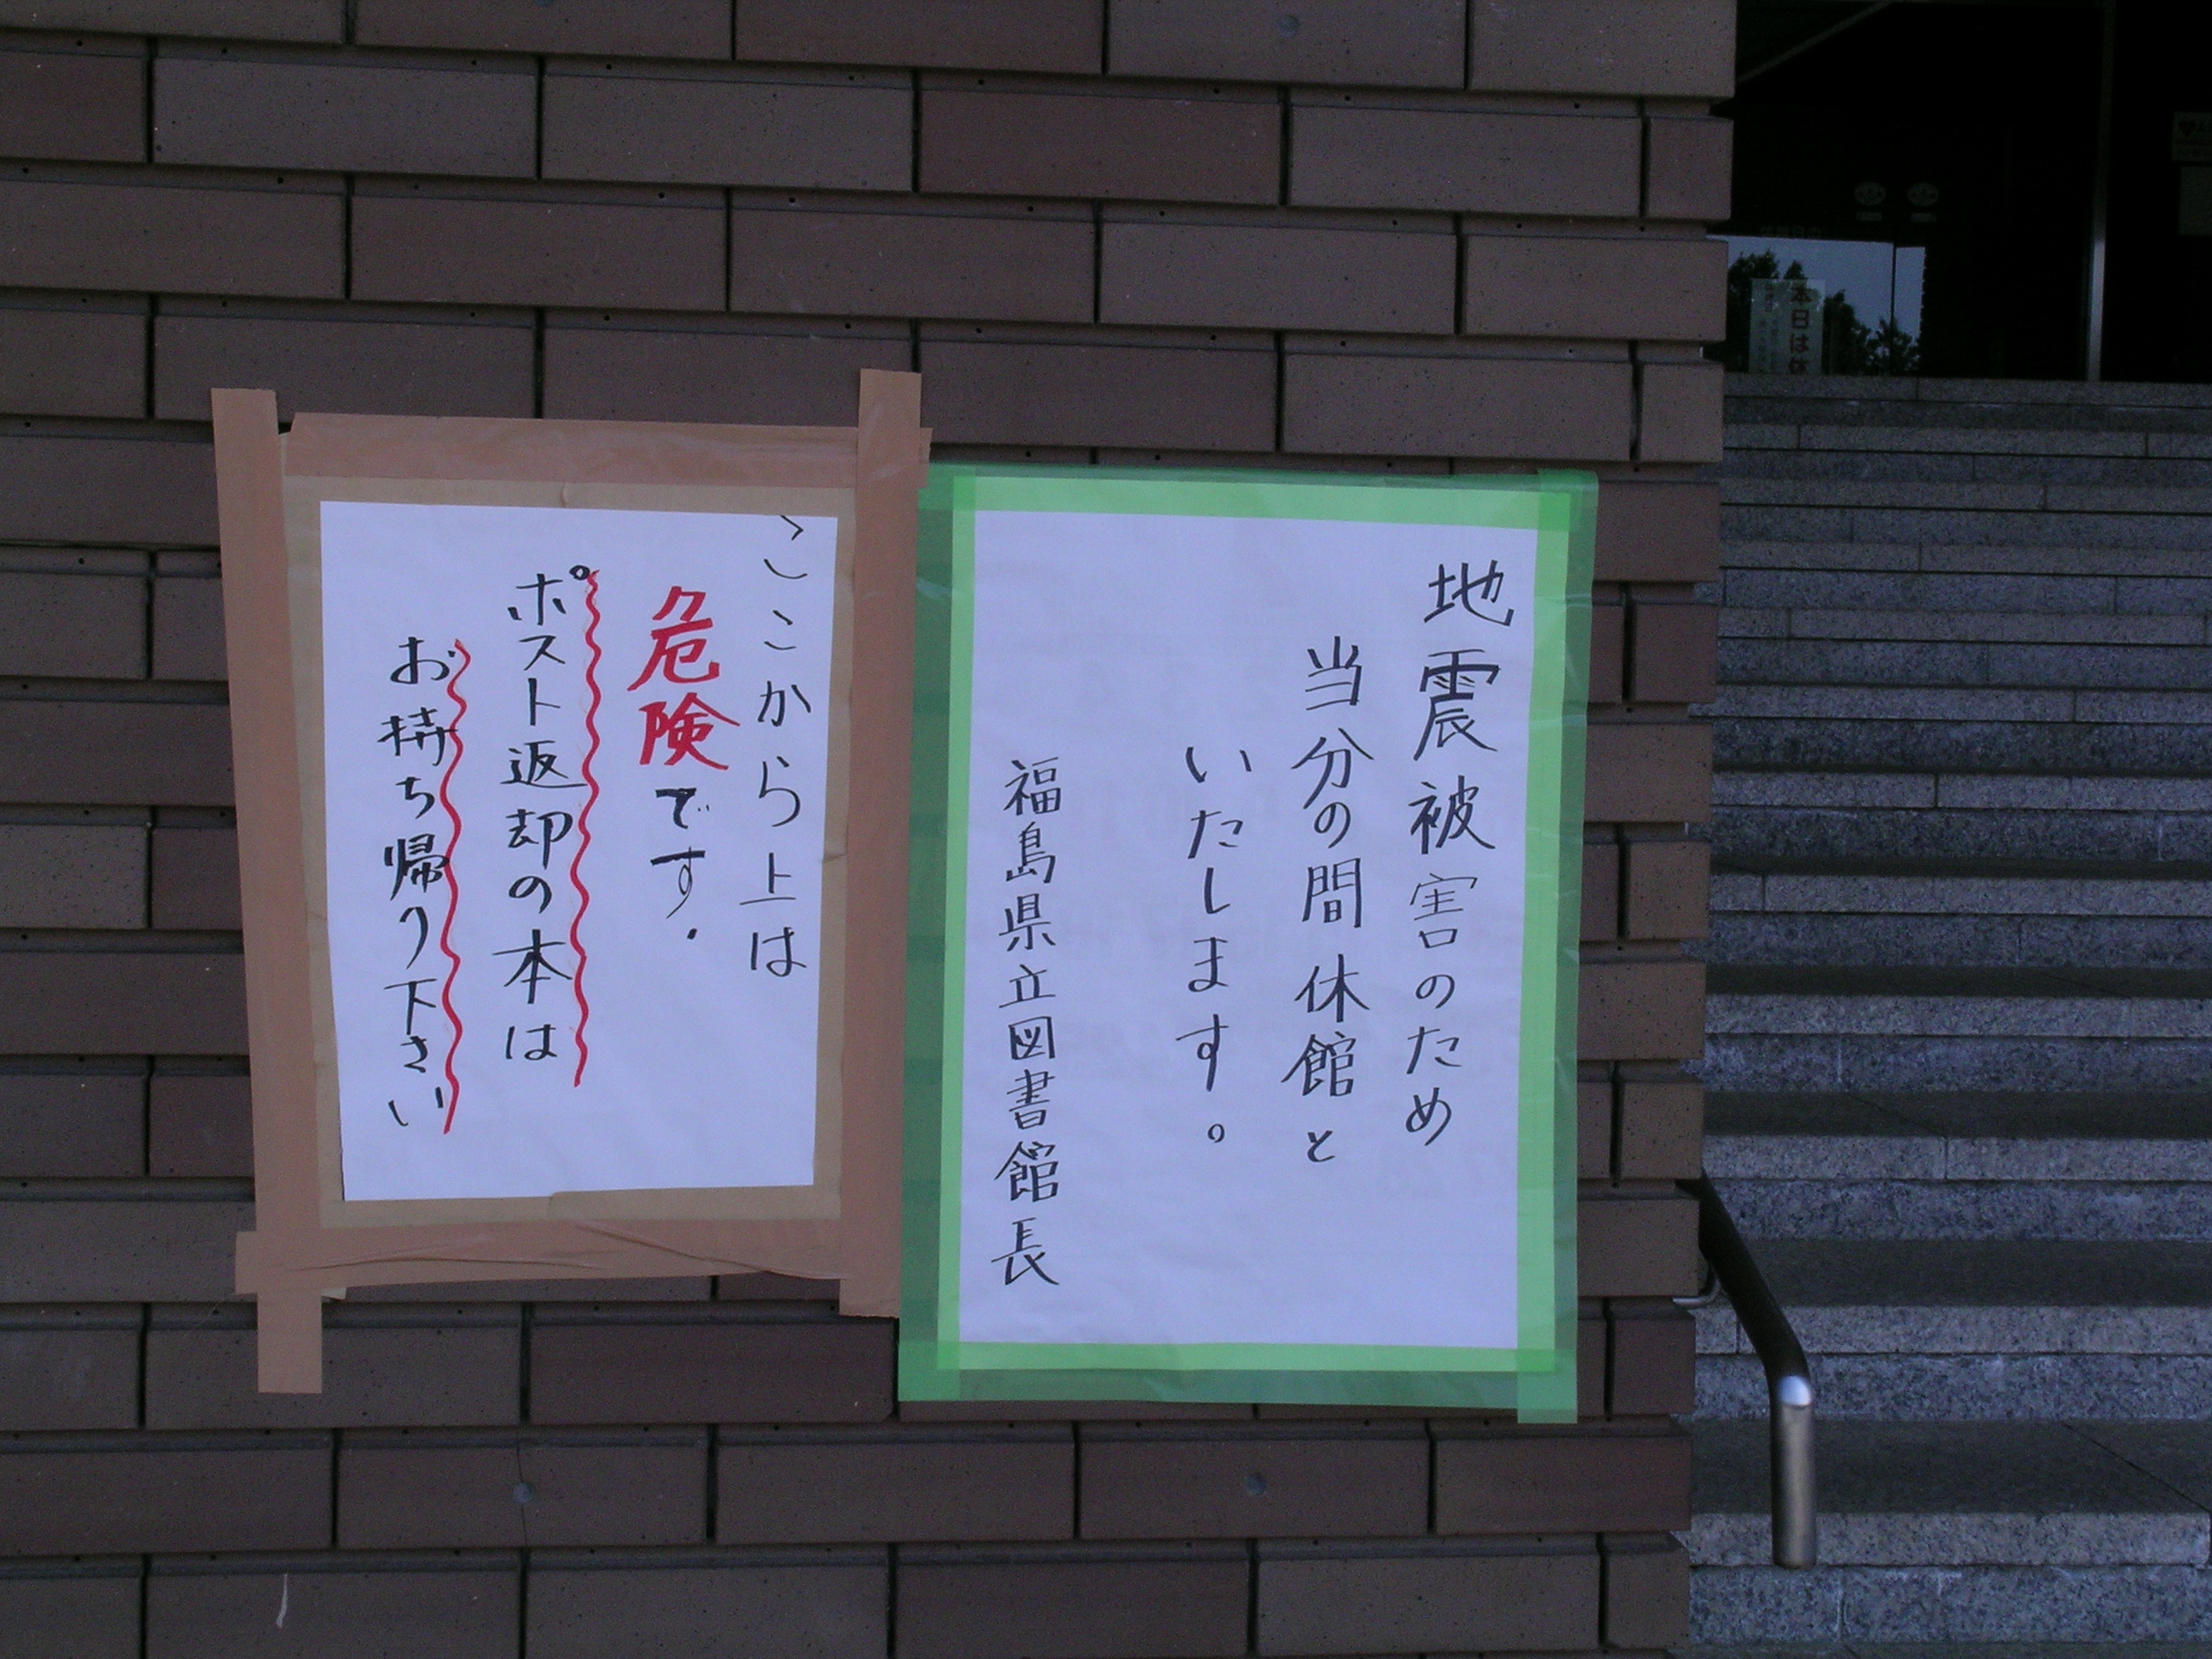 地震被害のため
当分の間休館と
いたします。
福島県立図書館長
ここから上は
危険です.
ポスト返却の本は
お持ち帰り下さい
本日は休